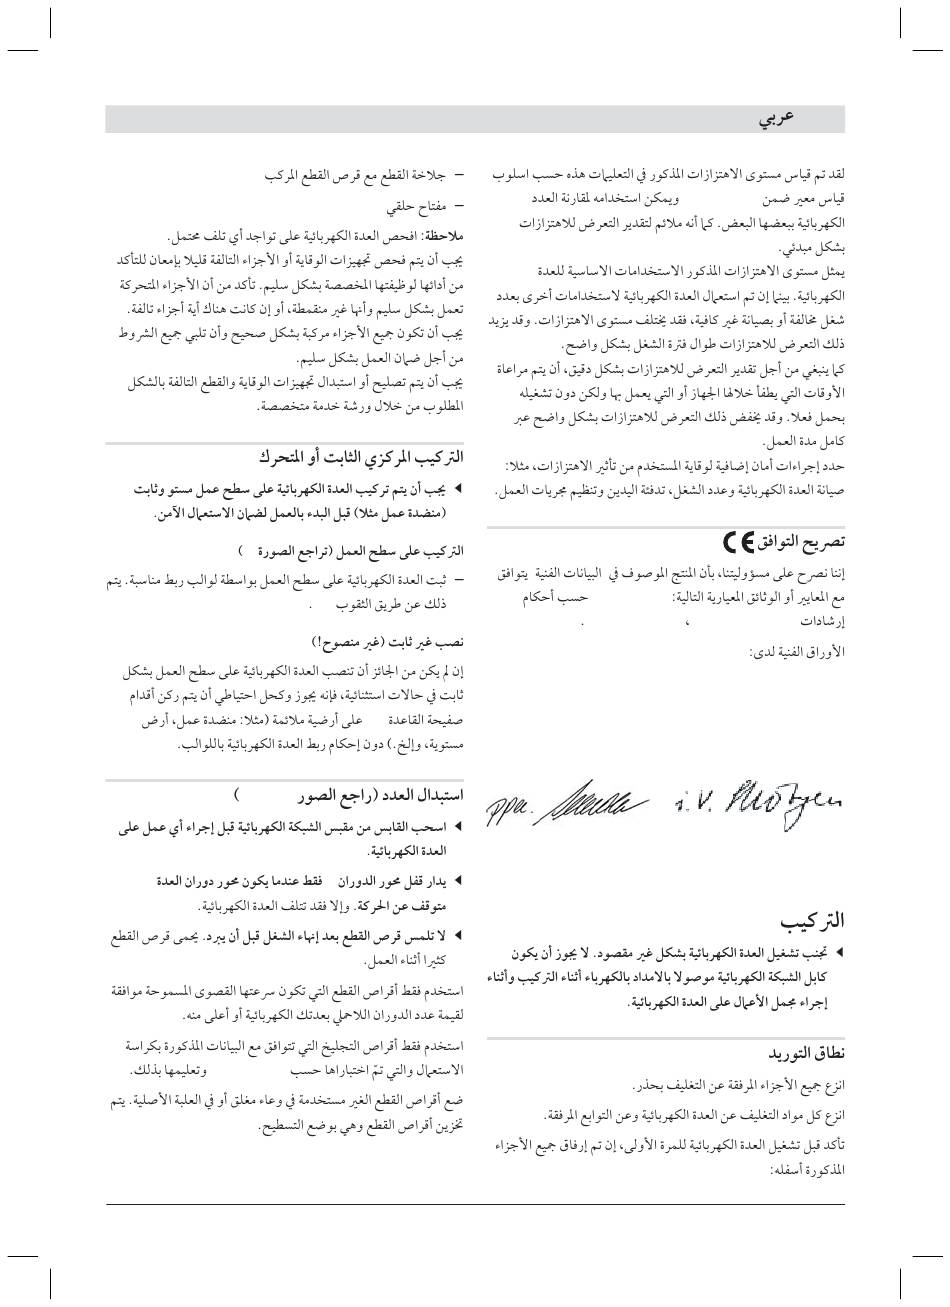 عربي
لقد تم قياس مستوى الاهتزازات المذكور في التعليمات هذه حسب اسلوب
قياس معير ضمن ويمكن استخدامه لمقارنة العدد
الكهربائية ببعضها البعض. كما أنه ملائم لتقدير التعرض للاهتزازات
بشكل مبدئي.
يمثل مستوى الاهتزازات المذكور الاستخدامات الاساسية للعدة
الكهربائية. بينما إن تم استعمال العدة الكهربائية لاستخدامات أخرى بعدد
شغل مخالفة أو بصيانة غير كافية، فقد يختلف مستوى الاهتزازات. وقد يزيد
ذلك التعرض للاهتزازات طوال فترة الشغل بشكل واضح.
كما ينبغي من أجل تقدير التعرض للاهتزازات بشكل دقيق، أن يتم مراعاة
الأوقات التي يطفأ خلالها الجهاز أو التي يعمل بها ولكن دون تشغيله
بحمل فعلا. وقد يخفض ذلك التعرض للاهتزازات بشكل واضح عبر
كامل مدة العمل.
حدد إجراءات أمان إضافية لوقاية المستخدم من تأثير الاهتزازات، مثلا:
صيانة العدة الكهربائية وعدد الشغل، تدفئة اليدين وتنظيم مجريات العمل.
تصريح التوافق CE
إننا نصرح على مسؤوليتنا، بأن المنتج الموصوف في البيانات الفنية يتوافق
مع المعايير أو الوثائق المعيارية التالية: حسب أحكام
إرشادات ، .
الأوراق الفنية لدى:
ppa. i.V.
التركيب
◀ تجنب تشغيل العدة الكهربائية بشكل غير مقصود. لا يجوز أن يكون
كابل الشبكة الكهربائية موصولا بالامداد بالكهرباء أثناء التركيب وأثناء
إجراء مجمل الأعمال على العدة الكهربائية.
نطاق التوريد
انزع جميع الأجزاء المرفقة عن التغليف بحذر.
انزع كل مواد التغليف عن العدة الكهربائية وعن التوابع المرفقة.
تأكد قبل تشغيل العدة الكهربائية للمرة الأولى، إن تم إرفاق جميع الأجزاء
المذكورة أسفله:
– جلاخة القطع مع قرص القطع المركب
– مفتاح حلقي
ملاحظة: افحص العدة الكهربائية على تواجد أي تلف محتمل.
يجب أن يتم فحص تجهيزات الوقاية أو الأجزاء التالفة قليلا بإمعان للتأكد
من أدائها لوظيفتها المخصصة بشكل سليم. تأكد من أن الأجزاء المتحركة
تعمل بشكل سليم وأنها غير منقمطة، أو إن كانت هناك أية أجزاء تالفة.
يجب أن تكون جميع الأجزاء مركبة بشكل صحيح وأن تلبي جميع الشروط
من أجل ضمان العمل بشكل سليم.
يجب أن يتم تصليح أو استبدال تجهيزات الوقاية والقطع التالفة بالشكل
المطلوب من خلال ورشة خدمة متخصصة.
التركيب المركزي الثابت أو المتحرك
◀ يجب أن يتم تركيب العدة الكهربائية على سطح عمل مستو وثابت
(منضدة عمل مثلا) قبل البدء بالعمل لضمان الاستعمال الآمن.
التركيب على سطح العمل (تراجع الصورة )
– ثبت العدة الكهربائية على سطح العمل بواسطة لوالب ربط مناسبة. يتم
ذلك عن طريق الثقوب .
نصب غير ثابت (غير منصوح!)
إن لم يكن من الجائز أن تنصب العدة الكهربائية على سطح العمل بشكل
ثابت في حالات استثنائية، فإنه يجوز وكحل احتياطي أن يتم ركن أقدام
صفيحة القاعدة على أرضية ملائمة (مثلا: منضدة عمل، أرض
مستوية، وإلخ.) دون إحكام ربط العدة الكهربائية باللوالب.
استبدال العدد (راجع الصور )
◀ اسحب القابس من مقبس الشبكة الكهربائية قبل إجراء أي عمل على
العدة الكهربائية.
◀ يدار قفل محور الدوران فقط عندما يكون محور دوران العدة
متوقف عن الحركة. وإلا فقد تتلف العدة الكهربائية.
◀ لا تلمس قرص القطع بعد إنهاء الشغل قبل أن يبرد. يحمى قرص القطع
كثيرا أثناء العمل.
استخدم فقط أقراص القطع التي تكون سرعتها القصوى المسموحة موافقة
لقيمة عدد الدوران اللاحملي بعدتك الكهربائية أو أعلى منه.
استخدم فقط أقراص التجليخ التي تتوافق مع البيانات المذكورة بكراسة
الاستعمال والتي تمّ اختباراها حسب وتعليمها بذلك.
ضع أقراص القطع الغير مستخدمة في وعاء مغلق أو في العلبة الأصلية. يتم
تخزين أقراص القطع وهي بوضع التسطيح.